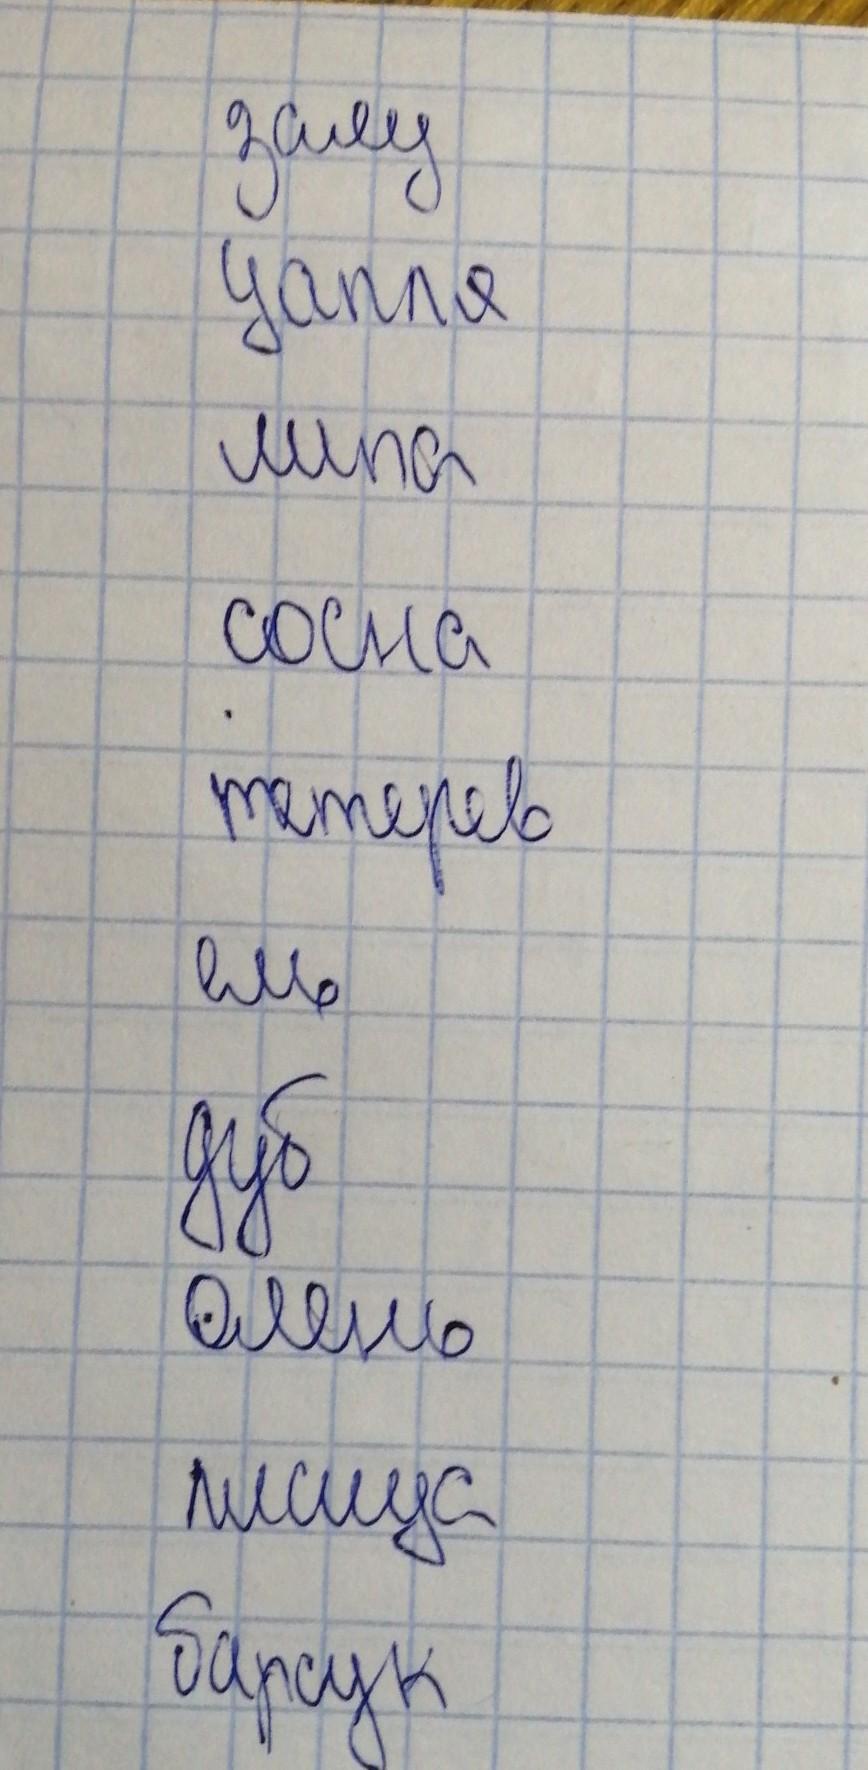 заяц
цапля
липа
сосна
тетерев
ель
дуб
олень
лисица
барсук